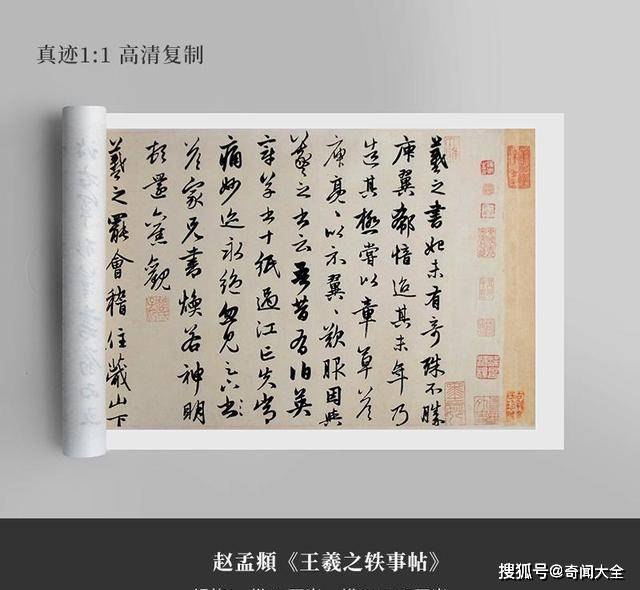 真迹1:1 高清复制
羲之書始未有奇殊不勝
庾翼郗愔迨其末年乃
造其極嘗以章草答
庾亮、以示翼、歎服因與
羲之書云吾昔有伯英
章草書十紙過江亡失常
痛妙迹永絶忽見足下書
答家兄書煥若神明
頓還舊觀
羲之罷會稽住蕺山下
赵孟頫《王羲之轶事帖》
搜狐号@奇闻大全